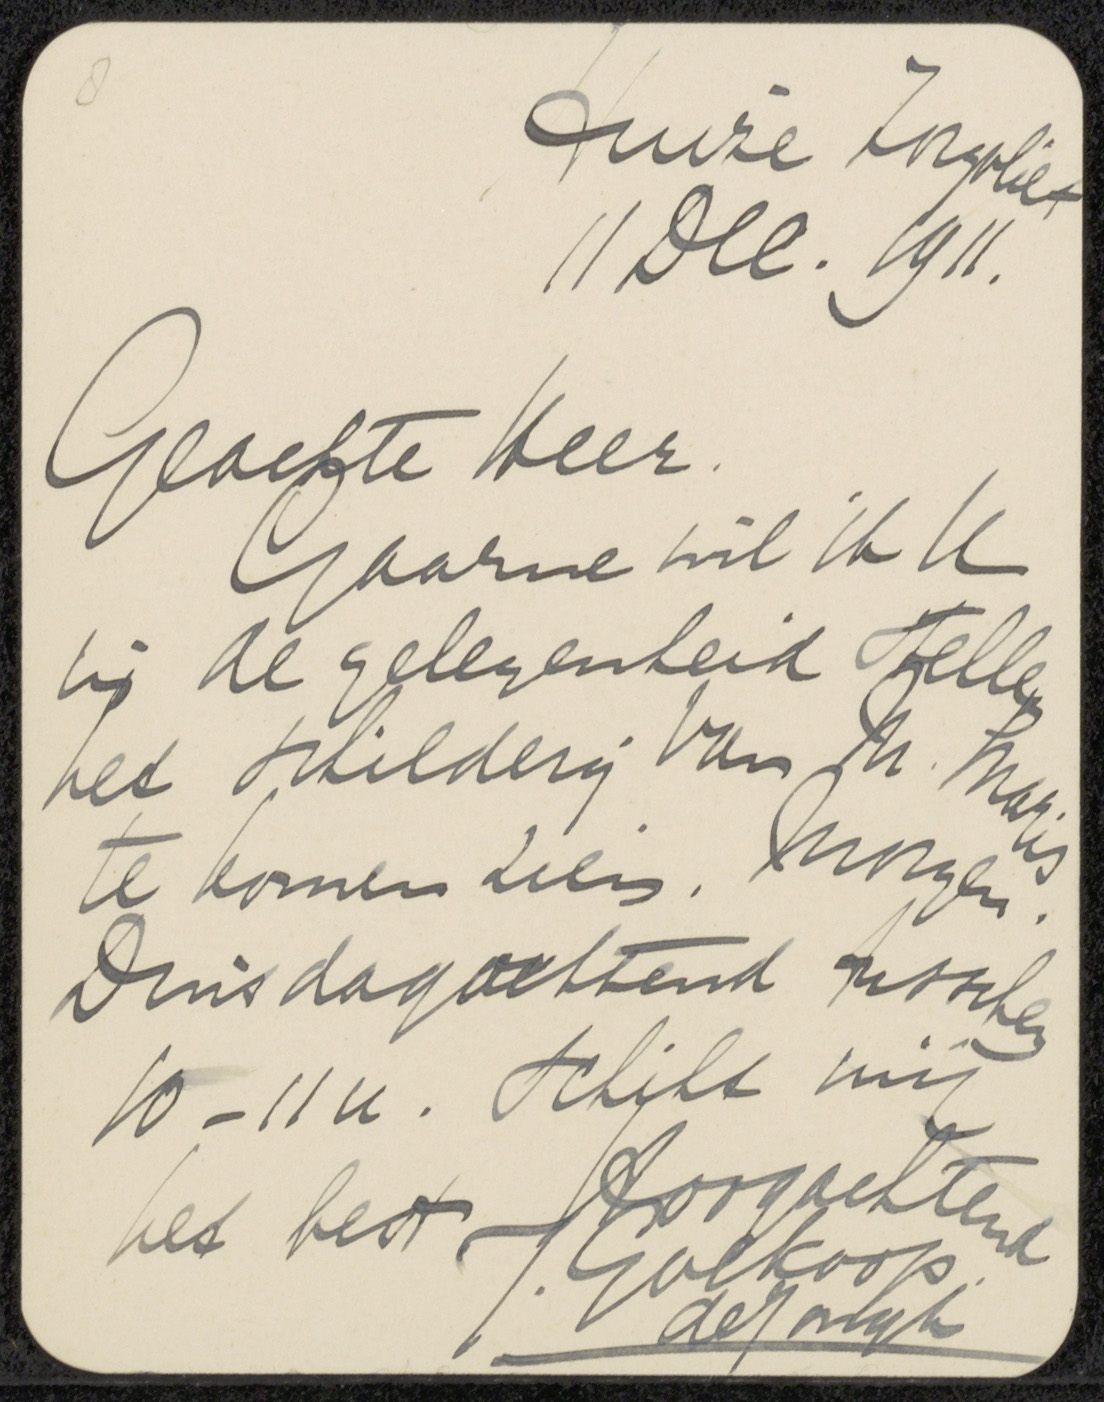 8
Huize Zorgvliet
11 Dec. 1911.
Geachte Heer.
Gaarne wil ik U
in de gelegenheid stellen
het schilderij van M. Maris
te komen zien. Morgen.
Dinsdagochtend tusschen
10 - 11 u. schikt mij
het best
Hoogachtend
J. Goekoop.
de Jongh